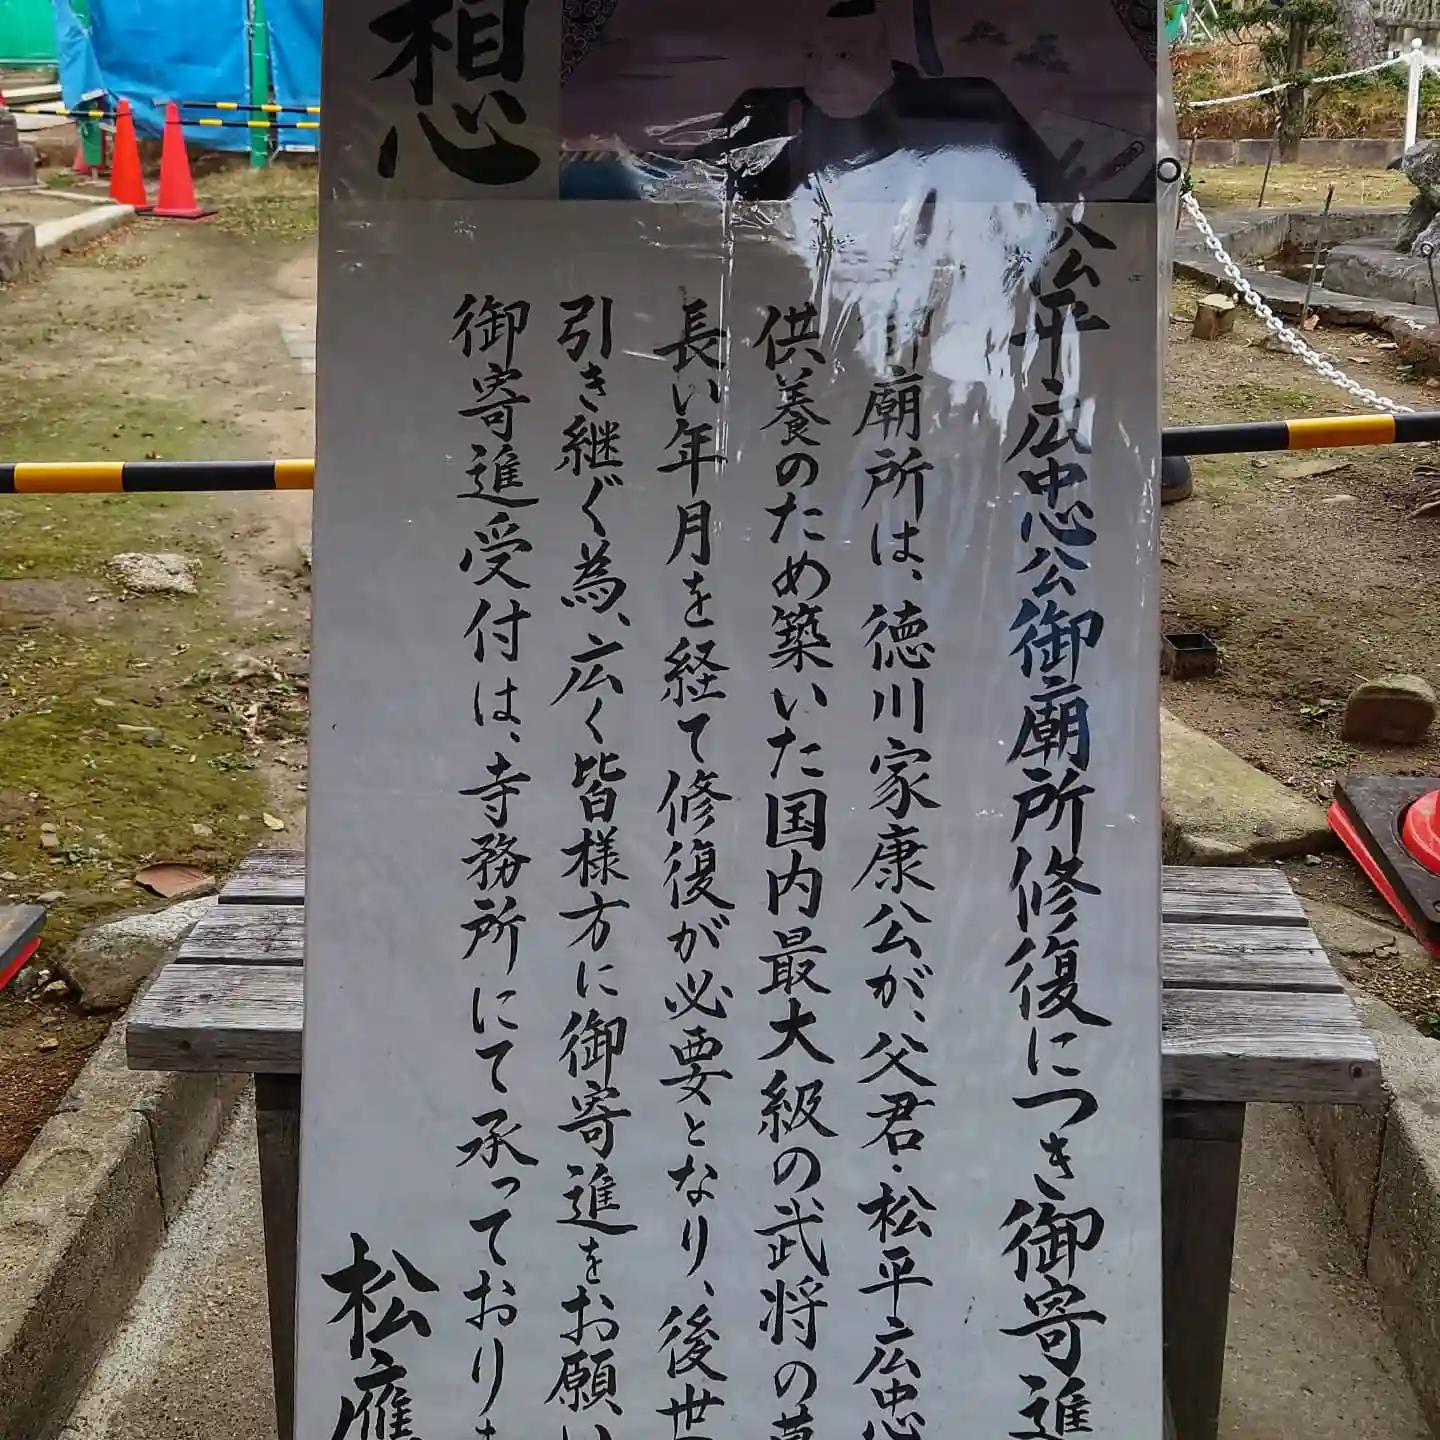 想
松平広忠公御廟所修復につき御寄進
御廟所は、徳川家康公が、父君・松平広忠
供養のため築いた国内最大級の武将の墓
長い年月を経て修復が必要となり、後世
引き継ぐ為、広く皆様方に御寄進をお願い
御寄進受付は、寺務所にて承っておりま
松應